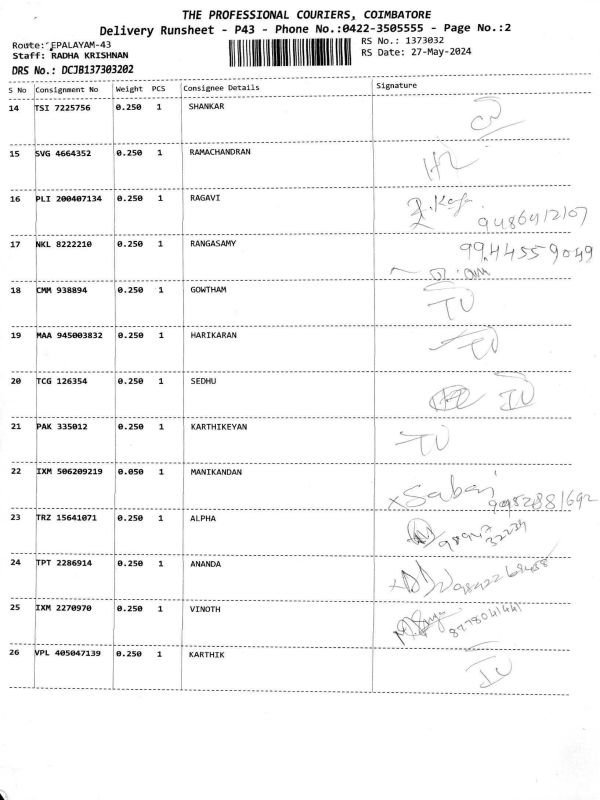 THE PROFESSIONAL COURIERS, COIMBATORE
Delivery Runsheet - P43 - Phone No.:0422-3505555 - Page No.:2
Route: EPALAYAM-43
RS No.: 1373032
Staff: RADHA KRISHNAN
RS Date: 27-May-2024
DRS No.: DCJB137303202
S No Consignment No Weight PCS Consignee Details Signature
14 TSI 7225756 0.250 1 SHANKAR
15 SVG 4664352 0.250 1 RAMACHANDRAN
16 PLI 200407134 0.250 1 RAGAVI
9486412107
17 NKL 8222210 0.250 1 RANGASAMY 9944559049
18 CMM 938894 0.250 1 GOWTHAM
19 MAA 945003832 0.250 1 HARIKARAN
20 TCG 126354 0.250 1 SEDHU
21 PAK 335012 0.250 1 KARTHIKEYAN
22 IXM 506209219 0.050 1 MANIKANDAN
23 TRZ 15641071 0.250 1 ALPHA
24 TPT 2286914 0.250 1 ANANDA
25 IXM 2270970 0.250 1 VINOTH 8778041441
26 VPL 405047139 0.250 1 KARTHIK